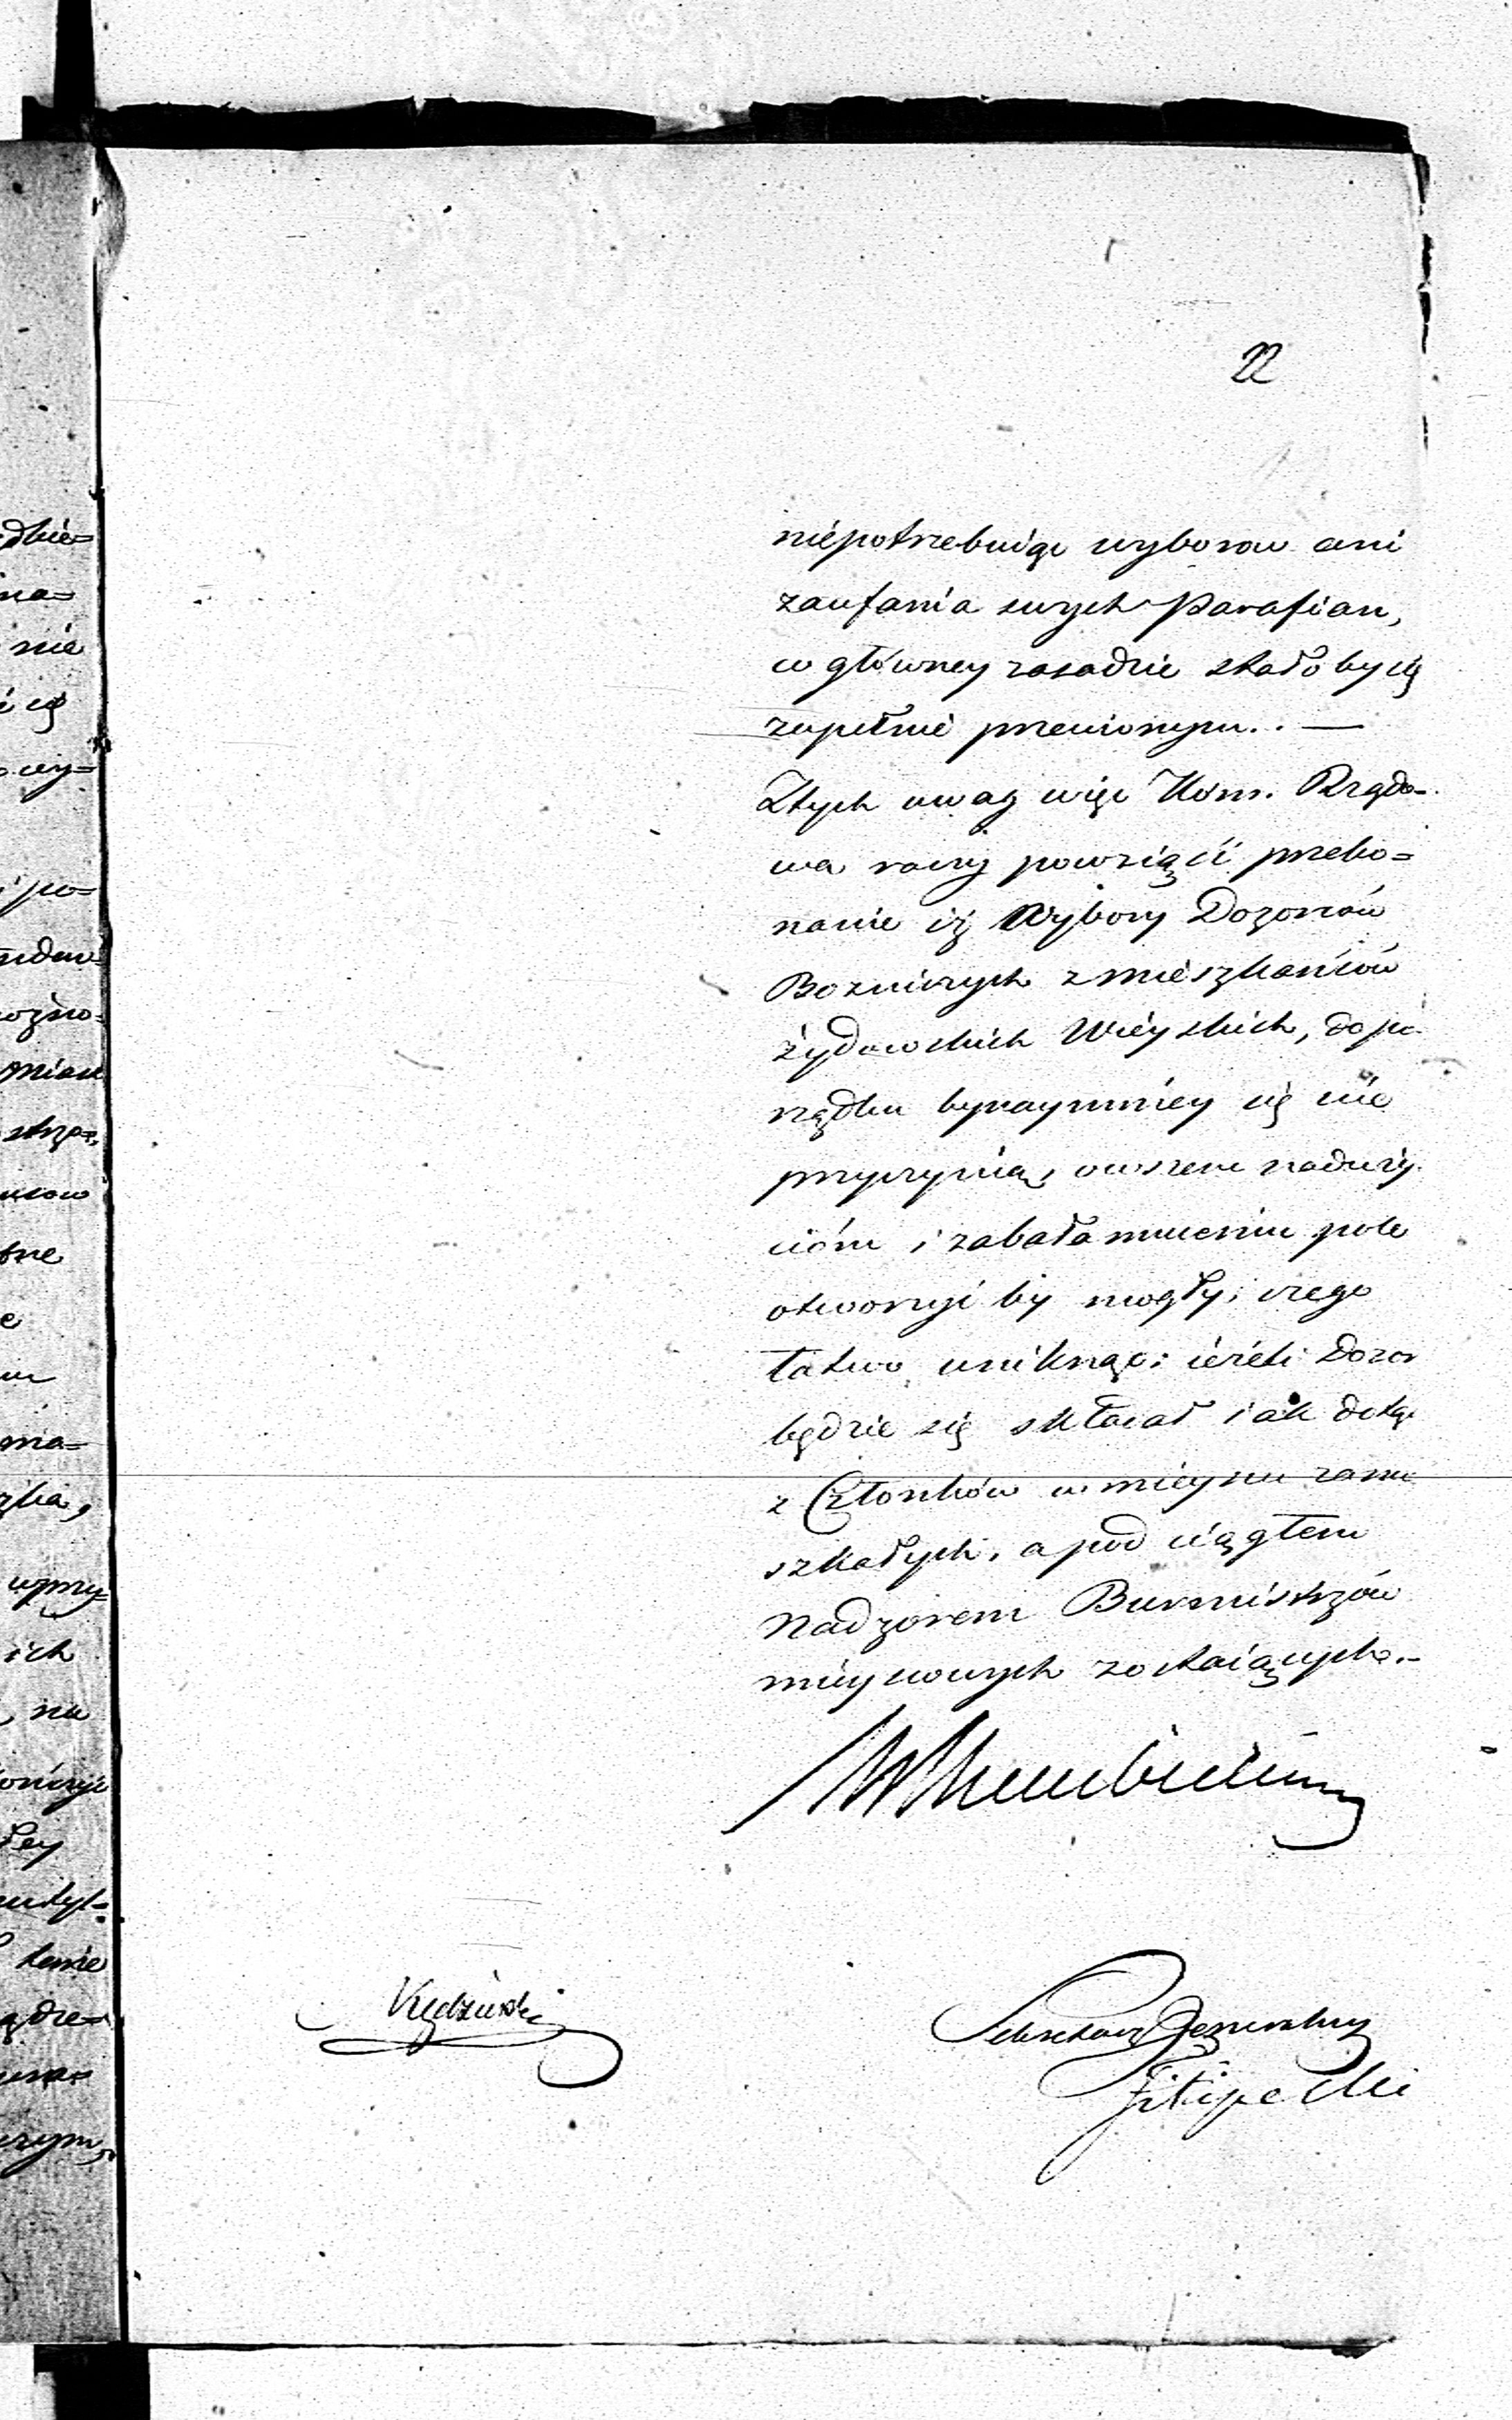 22
niepotrzebuiąc wyborow ani
zaufania swych Parafian,
w główney zasadzie stałoby się
zupełnie przeciwnym. . —
Z tych uwag więc Kom. Rządo-
wa raczy powziąść przeko=
nanie iż Wybory Dozorców
Bożniczych z mieszkańców
żydowskich Wieyskich, do po
rządku bynaymniey się nie
przyczynią, owszem naduży
ciom i zabałamuceniu pole
otworzyć by mogły; czego
łatwo uniknąć; ieżeli Dozor
będzie się składał iak dotąd
z Członków w mieyscu zamie
szkałych, a pod ciągłem
Nadzorem Burmistrzów
mieyscowych zostaiących.-
Kędzierski
Sekretarz Generalny
Filipecki